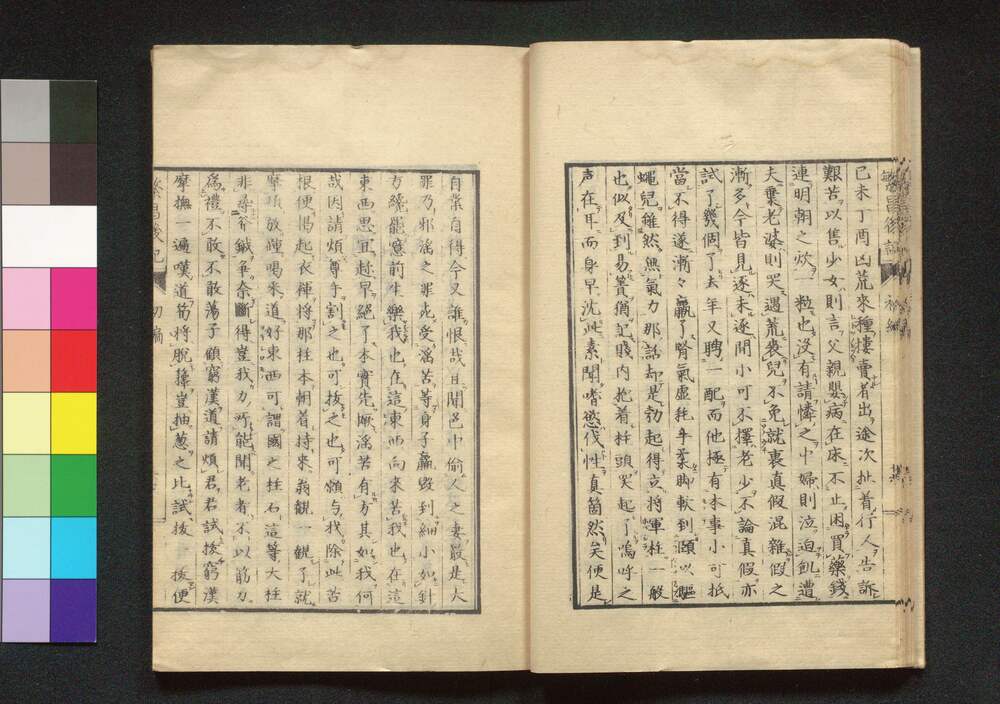 己未丁酉凶荒來種摟賣者出途次扯着行人告訴
艱苦以售少女則言父親嬰病在床不止困買藥錢
連明朝之炊一粒也没有請憐之中婦則泣迫飢遭
夫棄老婆則哭遇荒喪兒不免就裏真假混雜假之
漸多今皆見逐未逐間小可不擇老少不論真假亦
試了幾個了去年又聘一配而他極有本事小可抵
當不得遂漸々羸了腎氣虛耗手柔脚軟到頤以驅
蠅兒雖然無氣力那話却是勃起得立將渾柱一般
也似及到易簀猶記賤内抱着柱頭哭起了嗚呼之
声在耳而身早沈此素聞嗜慾伐性真箇然矣便是
自業自得今又誰恨哉且聞邑中偷人之妻最是大
罪乃邪淫之罪死受瀉苦等身子羸毀到細小如針
方纔罷意前生樂我也在這東西向來苦我也在這
東西思且趁早絕了本實先厥瀉苦有方其如我何
哉因請煩尊手割之也可拔之也可煩与我除此苦
根便揭起衣褲將那柱本帽着持來翁觀一觀了就
摩放陣喝采道好東西可謂國之柱石這等大柱
非尋斧鉞争奈斷得豈我力所能聞老者不以筋力
爲禮不敢不敢蕩子顧窮漢道請煩君君試拔窮漢
摩撫一遍嘆道筍將脫籜豈抽葱之比試拔一拔便
繁昌後記 初編